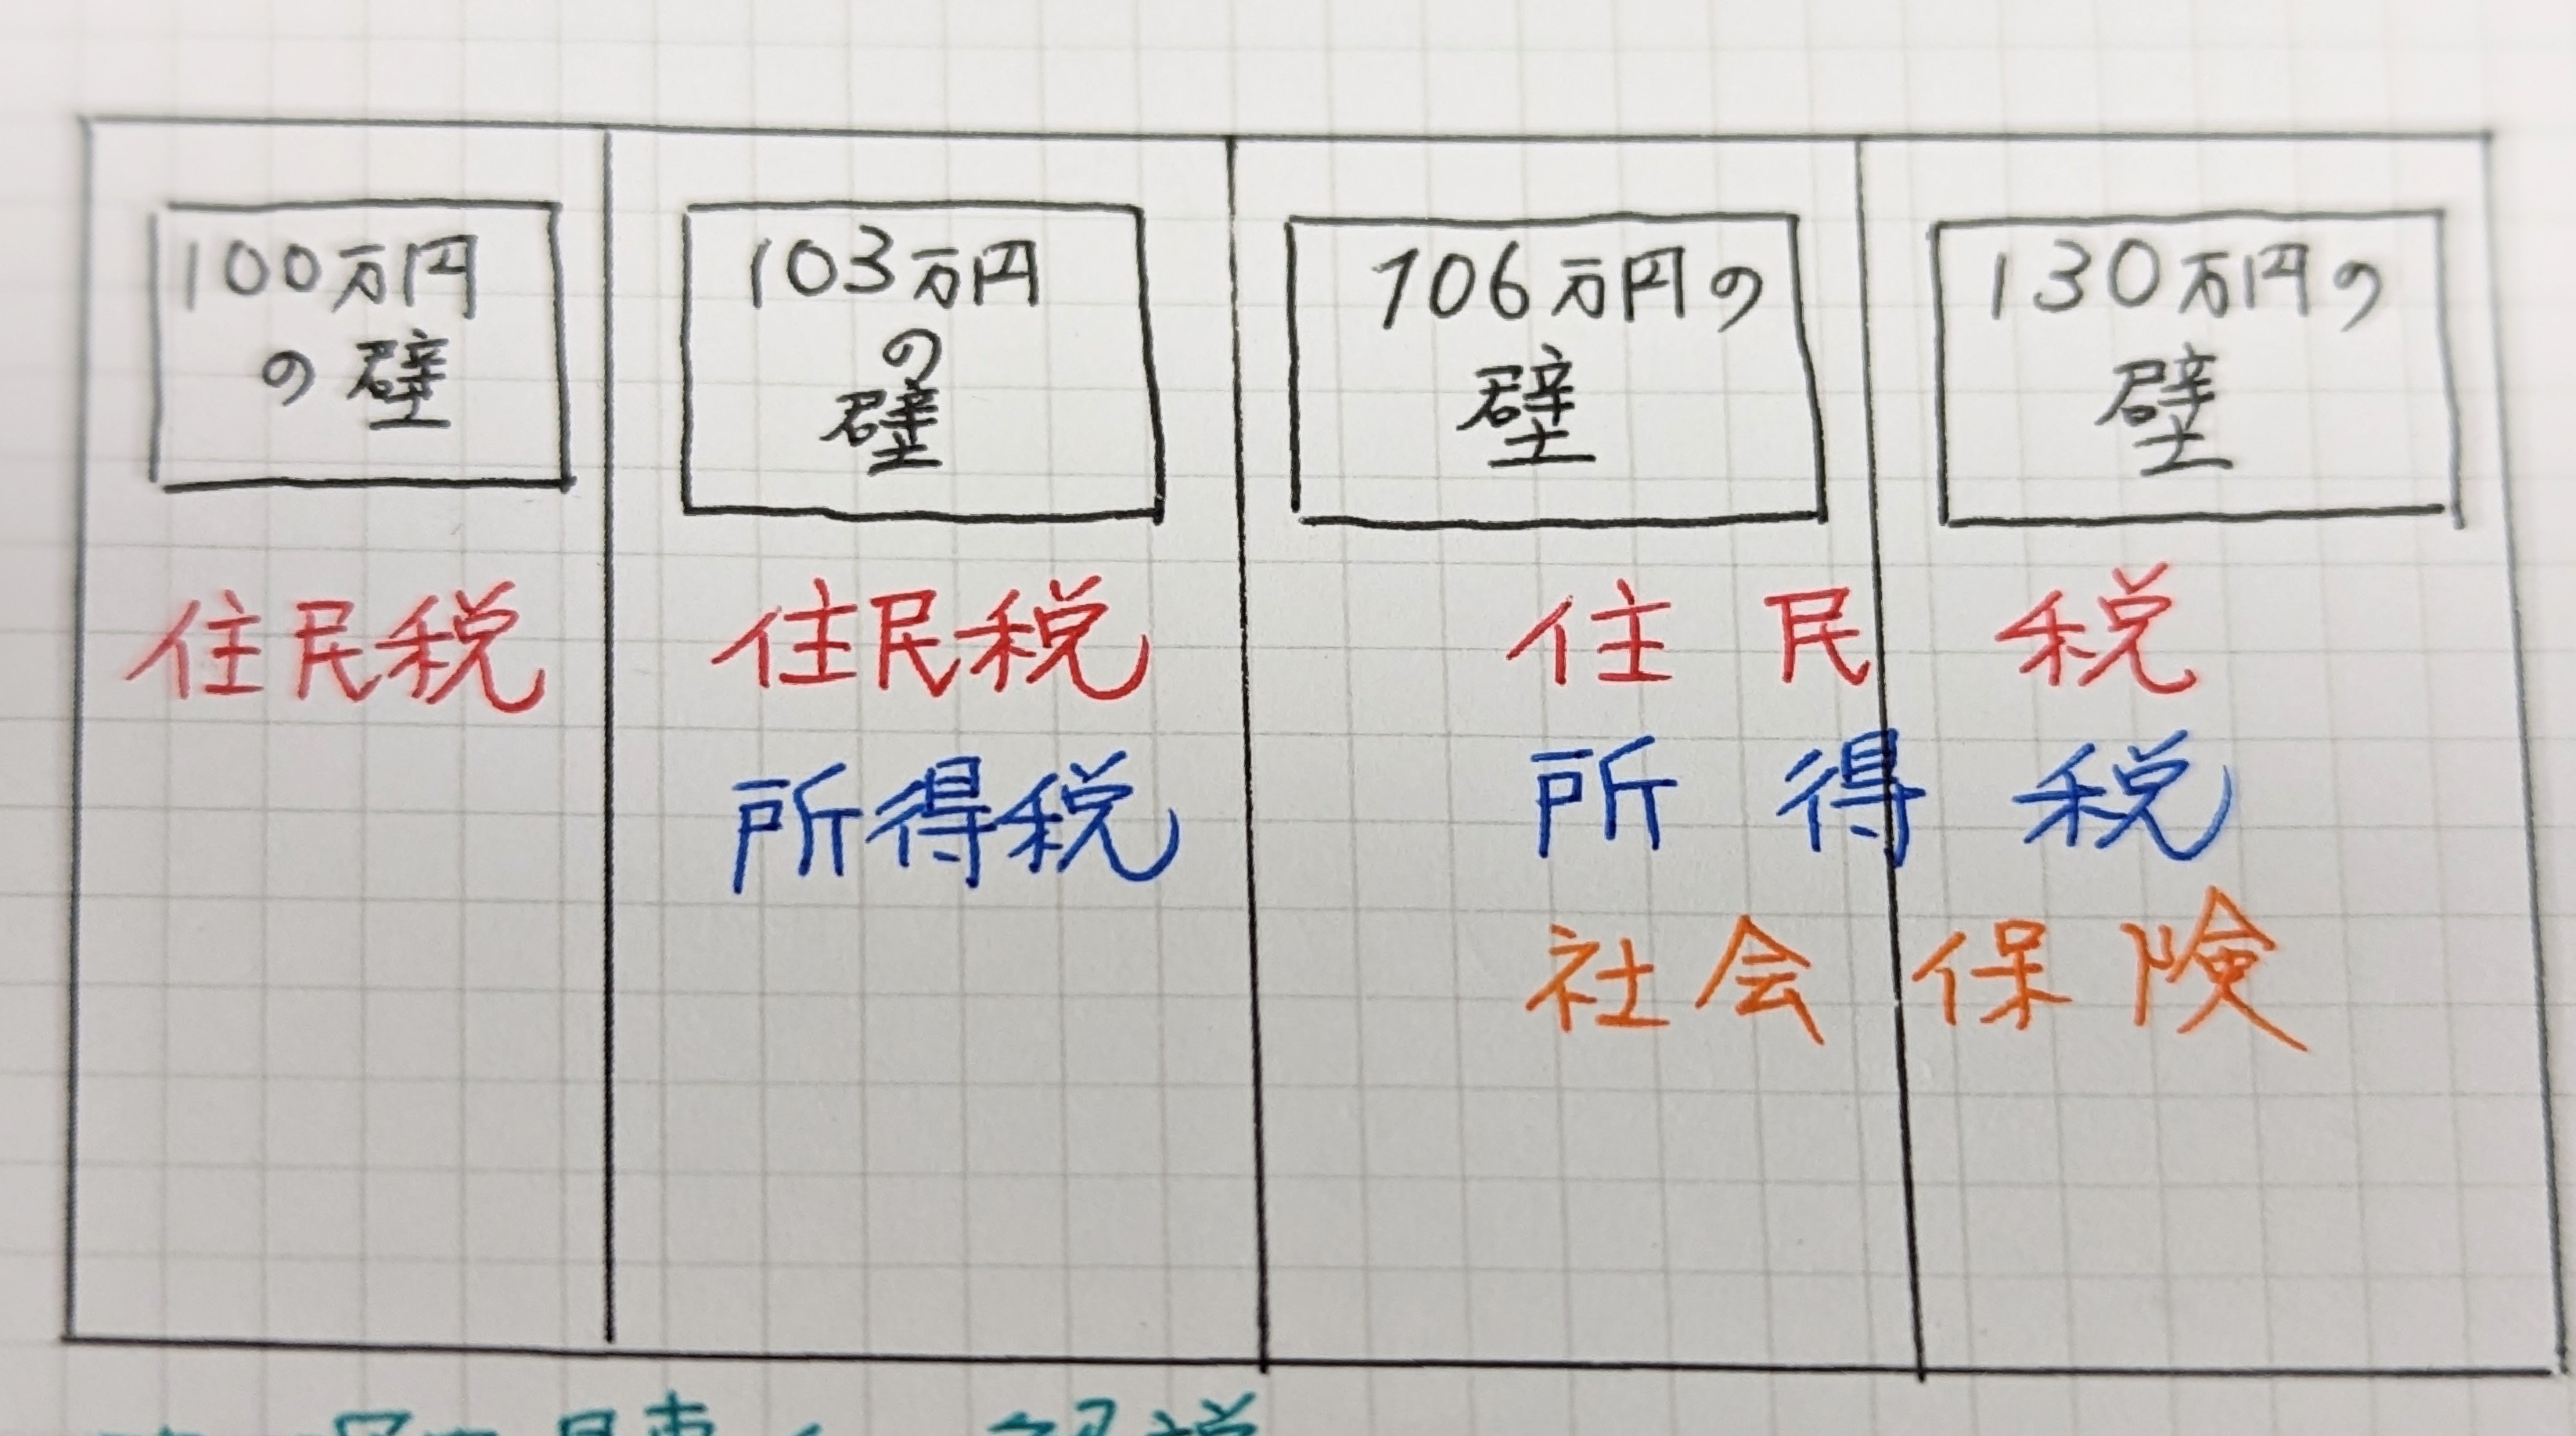 100万円
の壁
住民税
103万円
の
壁
住民税
所得税
106万円の
壁
130万円の
壁
住民税
所得税
社会保険